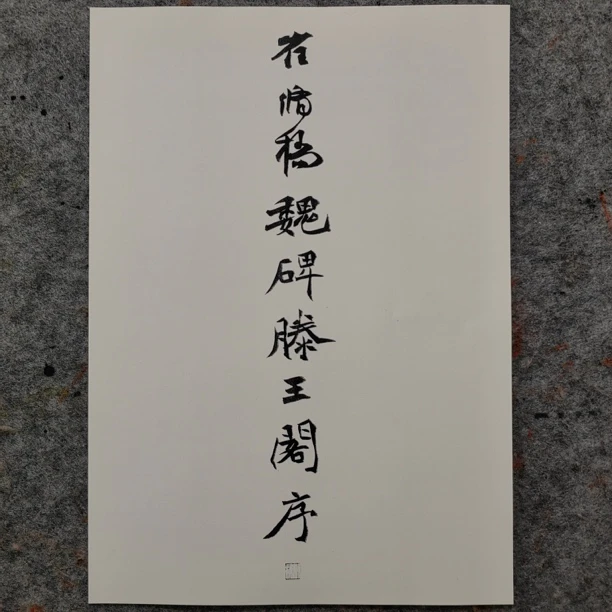 崔脩稿魏碑滕王閣序